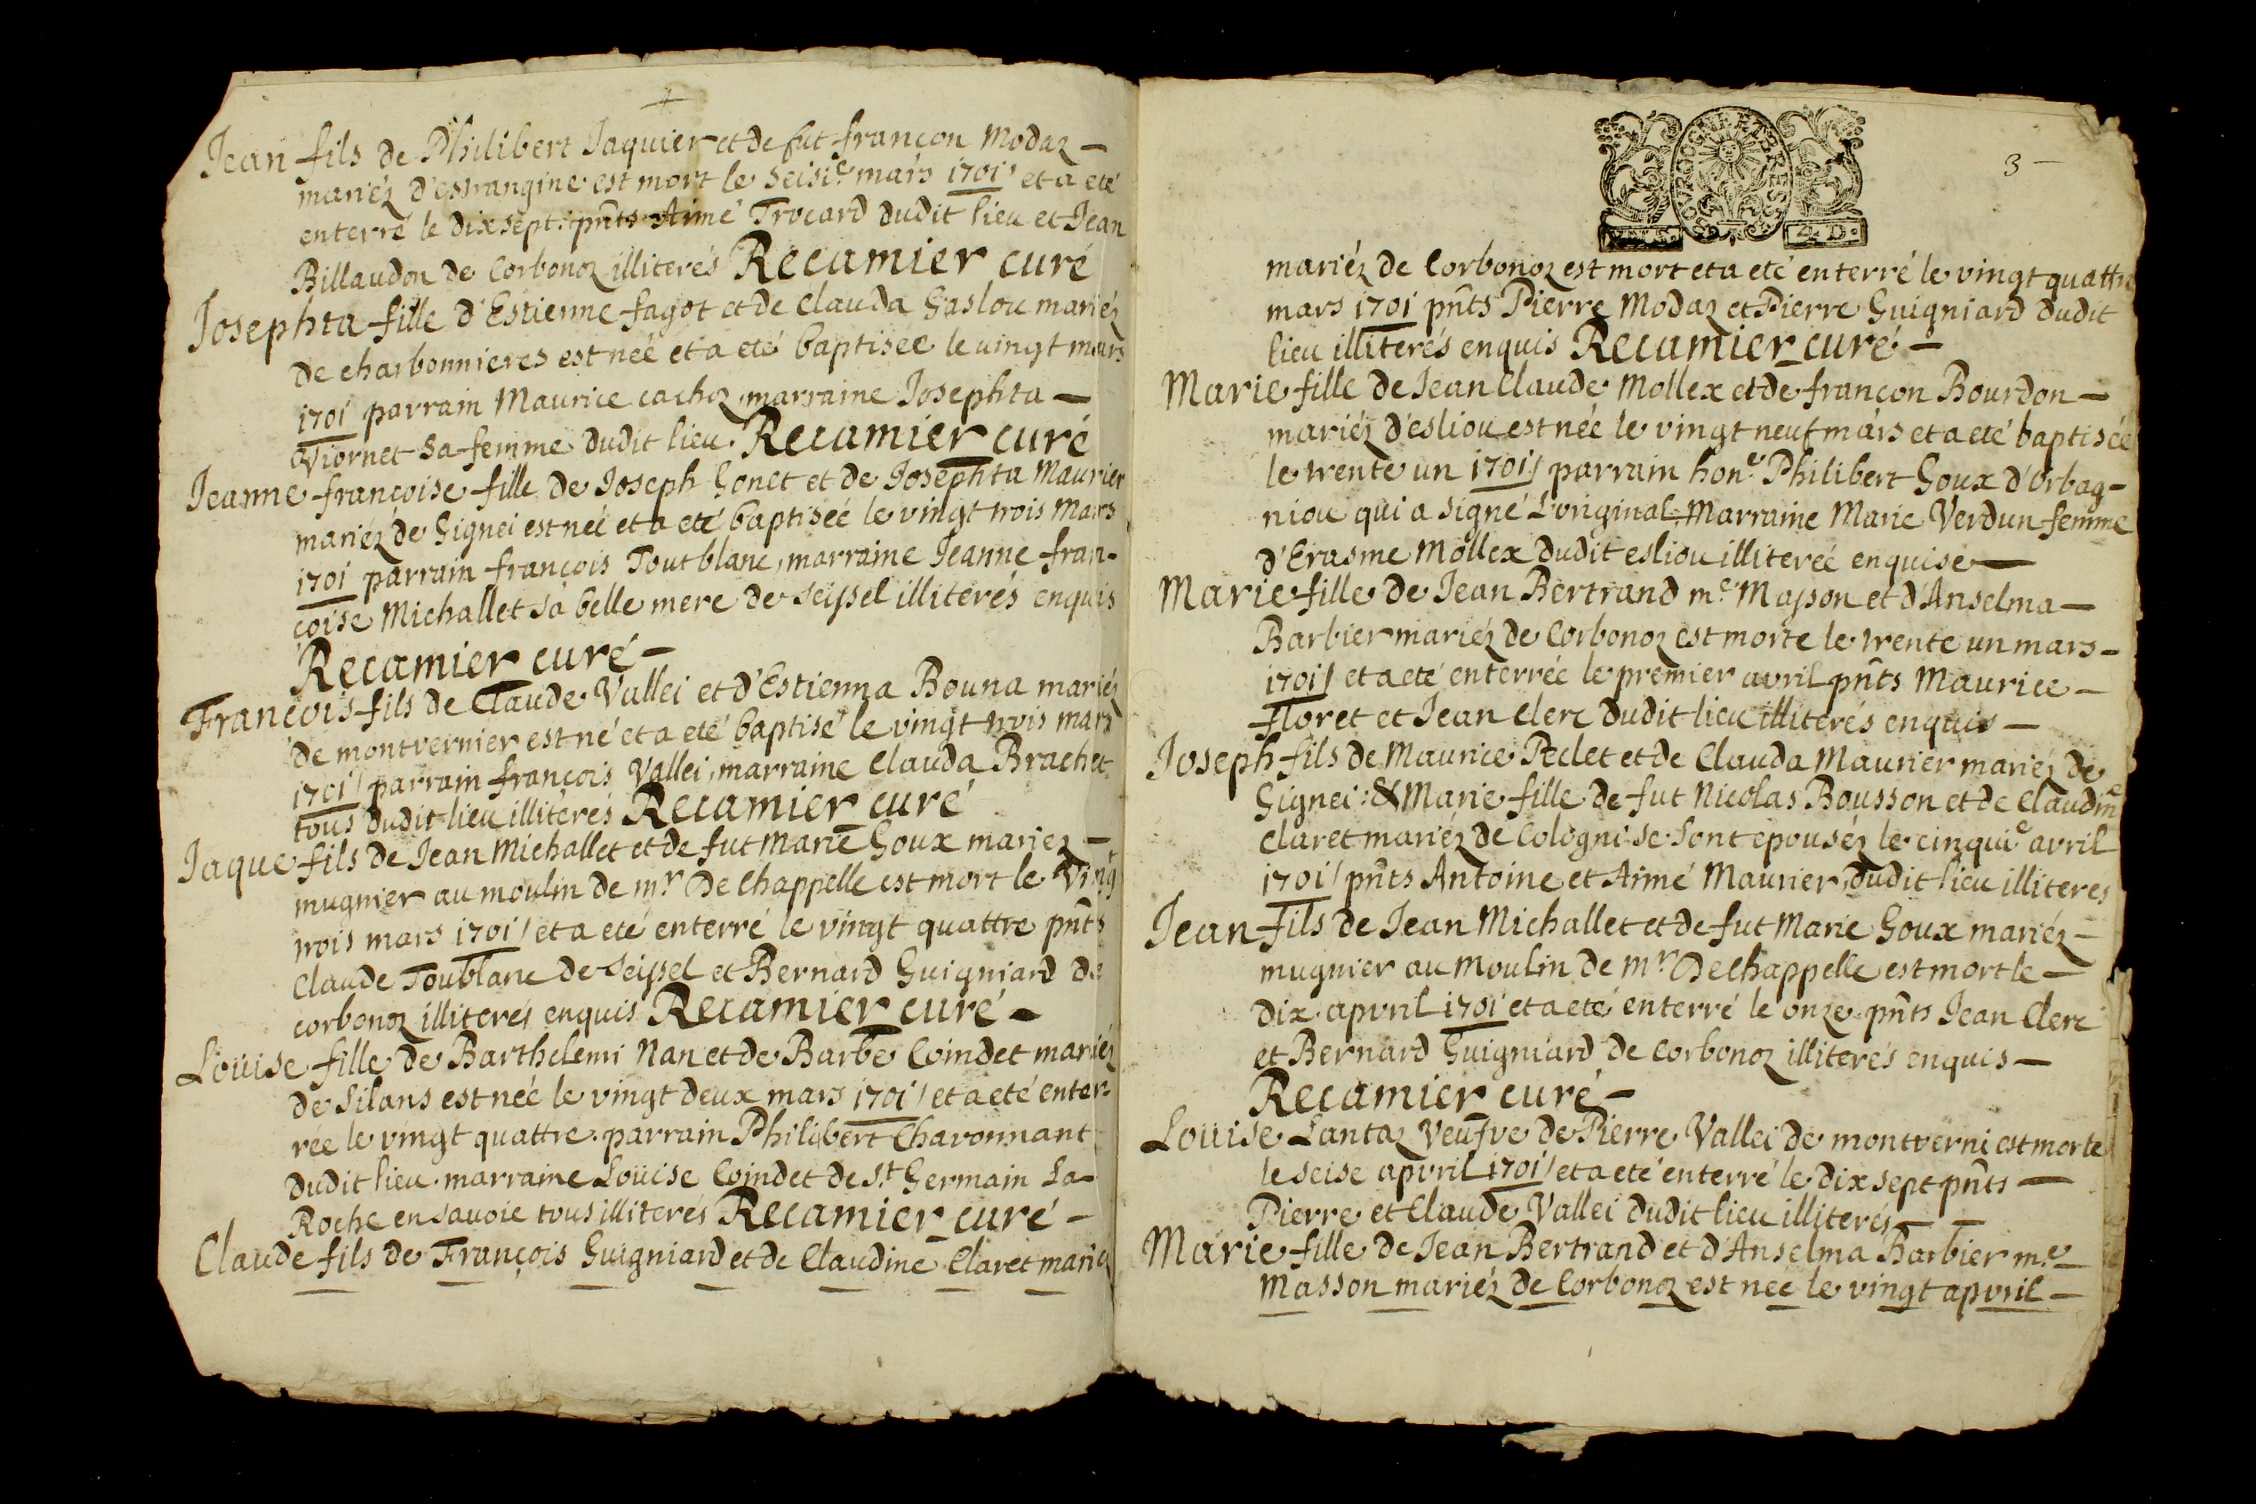 Jean fils de Philibert Jaquier et de fut françon Modaz –
mariéz d'estrangine est mort le seisi.e mars 1701 et a eté
enterré le dix sept. pñts Aimé Trocard dudit lieu et Jean
Billaudon de Corbonoz illiterés Recamier curé
Josephta fille d'Estienne fagot et de Clauda Gaslou mariéz
de charbonnieres est neé et a eté baptisee le vingt mars
1701 parrain Maurice cachoz, marraine Josephta –
Viornet sa femme dudit lieu. Recamier curé
Jeanne françoise fille de Joseph Gonet et de Josephta Maurier
mariéz de Gignei est neé et a eté baptiseé le vingt trois Mars
1701 parrain françois Toutblanc, marraine Jeanne fran-
çoise Michallet sa belle mere de seissel illiterés enquis
Recamier curé –
François fils de Claude Vallei et d'Estienna Bouna mariéz
de montvernier est né et a eté baptisé le vingt trois mars
1701 / parrain françois Vallei, marraine Clauda Brachet
tous dudit lieu illiterés Recamier curé
Jaque fils de Jean Michallet et de fut Marie Goux mariez –
mugnier au moulin de mr De Chappelle est mort le Vingt
trois mars 1701 / et a eté enterré le vingt quattre pñts
Claude Toublanc de seissel et Bernard Guigniard de
corbonoz illiterés enquis Recamier curé –
Loüise fille de Barthelemi Nan et de Barbe Coindet mariéz
de Silans est neé le vingt deux mars 1701 / et a eté enter-
rée le vingt quattre. parrain Philibert Charonnant
dudit lieu. marraine Loüise Coindet de St Germain La-
Roche en savoie tous illiterés Recamier curé –
Claude fils de François Guigniard et de Claudine Claret mariez
3 –
BOURGOGNE ET BRESSE
4. D.
mariéz de Corbonoz est mort et a eté enterré le vingt quattre
mars 1701 pñts Pierre Modaz et Pierre Guigniard dudit
lieu illiterés enquis Recamier curé –
Marie fille de Jean Claude Mollex et de françon Bourdon –
mariéz d'esliou est née le vingt neuf mars et a eté baptisée
le trente un 1701 / parrain hon.e Philibert Goux d'Orbag-
niou qui a signé L'original. Marraine Marie Verdun femme
d'Erasme Mollex dudit esliou illitereé enquise –
Marie fille de Jean Bertrand m.e Masson et d'Anselma –
Barbier mariéz de Corbonoz est morte le trente un mars –
1701 / et a eté enterrée le premier avril pñts Maurice –
Floret et Jean Clerc dudit lieu illiterés enquis –
Joseph fils de Maurice Peclet et de Clauda Maurier mariéz de
Gignei: & Marie fille de fut Nicolas Bousson et de Claudine
Claret mariéz de Cologni se sont epouséz le cinqui.e avril
1701 / pñts Antoine et Aimé Maurier, dudit lieu illiteres
Jean fils de Jean Michallet et de fut Marie Goux mariéz –
mugnier au moulin de mr De Chappelle est mort le –
dix apvril 1701 et a eté enterré le onze pñts Jean Clerc
et Bernard Guigniard de Corbonoz illiterés enquis –
Recamier curé –
Loüise Lantaz Veufve de Pierre Vallei de montverni est morte
le seise apvril 1701 / et a eté enterré le dix sept pñts –
Pierre et Claude Vallei dudit lieu illiterés –
Marie fille de Jean Bertrand et d'Anselma Barbier m.e
Masson mariéz de Corbonoz est neé le vingt apvril –